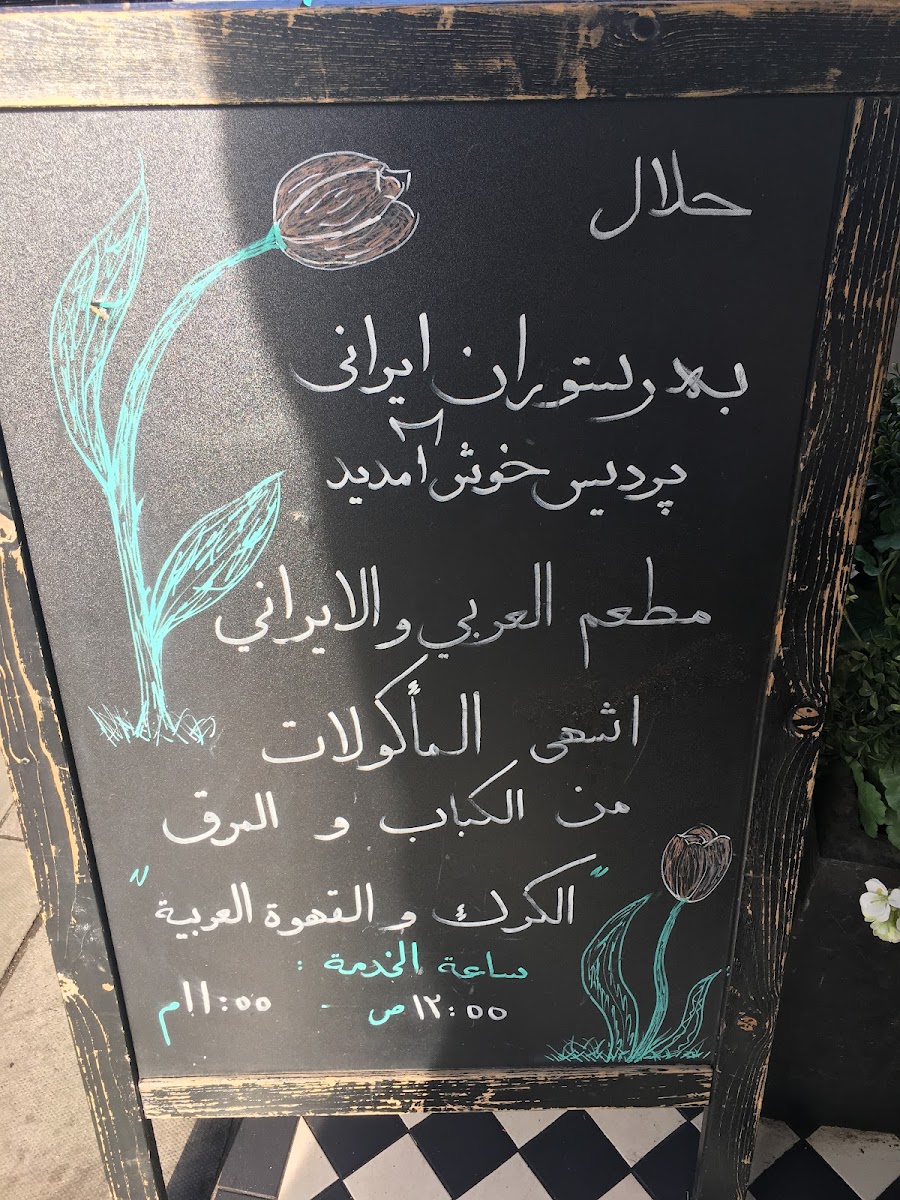 حلال
به رستوران ایرانی
پردیس خوش آمدید
مطعم العربي و الايراني
اشهى المأكولات
من الكباب و المرق
"الكرك و القهوة العربية"
ساعة الخدمة :
١٢:٥٥ ص - ١١:٥٥ م